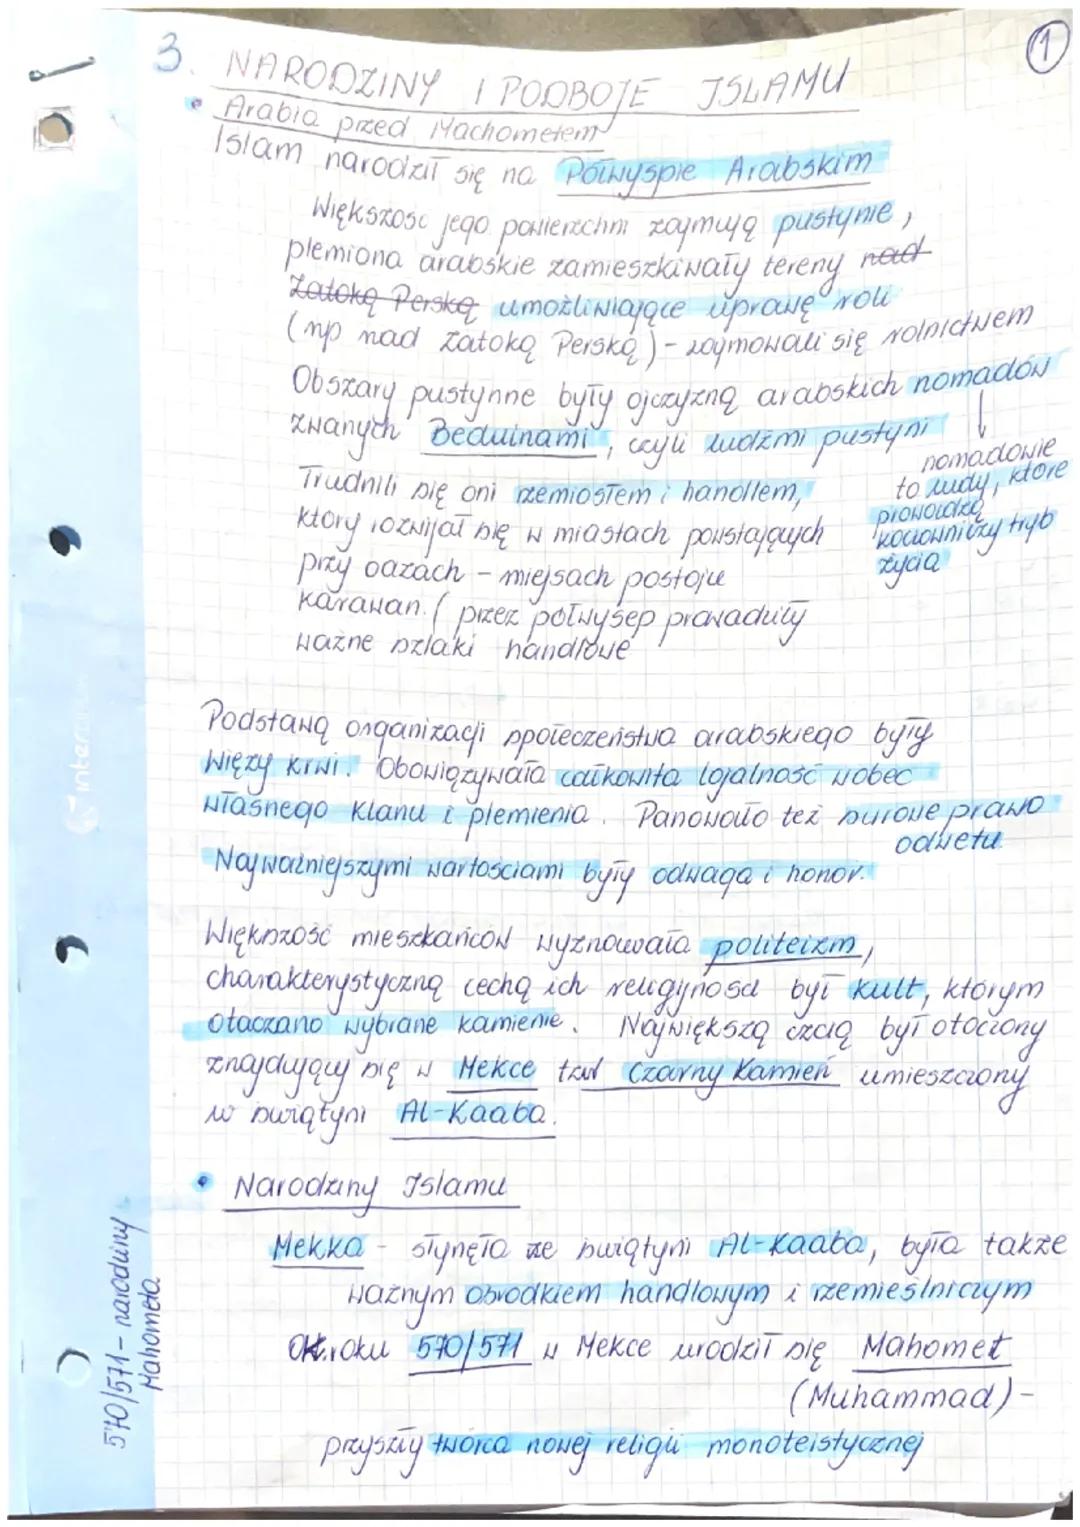 1
3. NARODZINY I PODBOJE ISLAMU
Arabia przed Machometem
Islam narodził się na Półwyspie Arabskim
Większość jego powierzchni zajmują pustynie,
plemiona arabskie zamieszkiwały tereny nad
Zatoką Perską umożliwiające uprawę roli
(np nad Zatoką Perską) - zajmowali się rolnictwem
Obszary pustynne były ojczyzną arabskich nomadów
zwanych Beduinami, czyli ludźmi pustyni
nomadowie
to ludy, które
prowadzą
koczowniczy tryb
życia
Trudnili się oni rzemiosłem i handlem,
który rozwijał się w miastach powstających
przy oazach - miejsach postoju
karawan. ( przez półwysep prowadziły
ważne szlaki handlowe
Podstawą organizacji społeczeństwa arabskiego były
więzy krwi. Obowiązywała całkowita lojalność wobec
własnego klanu i plemienia. Panowało też surowe prawo
odwetu
Najważniejszymi wartościami były odwaga i honor.
Większość mieszkańców wyznowała politeizm,
charakterystyczną cechą ich religijności był kult, którym
otaczano wybrane kamienie. Największą czcią był otoczony
znajdujący się w Mekce tzw Czarny Kamień umieszczony
w świątyni Al-Kaaba.
Narodziny Islamu
Mekka - słynęła ze świątyni Al-Kaaba, była także
ważnym ośrodkiem handlowym i rzemieślniczym
Ok. roku 570/571 w Mekce urodził się Mahomet
(Muhammad) -
przyszły twórca nowej religii monoteistycznej
570/571 - narodziny
Mahometa